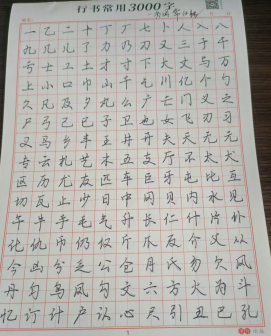 行书常用3000字
一乙二十丁厂七卜人入八
九几儿了力乃刀又三于干
亏士工土才寸下大丈与万
上小口巾山千乞川亿个勺
久凡及夕丸么广亡门义之
尸弓己已子卫也女飞刃习
叉马乡丰王井开夫天无元
专云扎艺木五支厅不太犬
区历尤友匹车巨牙屯比互
切瓦止少日中冈贝内水见
午牛手毛气升长仁什片仆
化仇币仍仅斤爪反介父从
今凶分乏公仓月氏勿欠风
丹匀乌凤勾文六方火为斗
忆订计户认心尺引丑巴孔
1